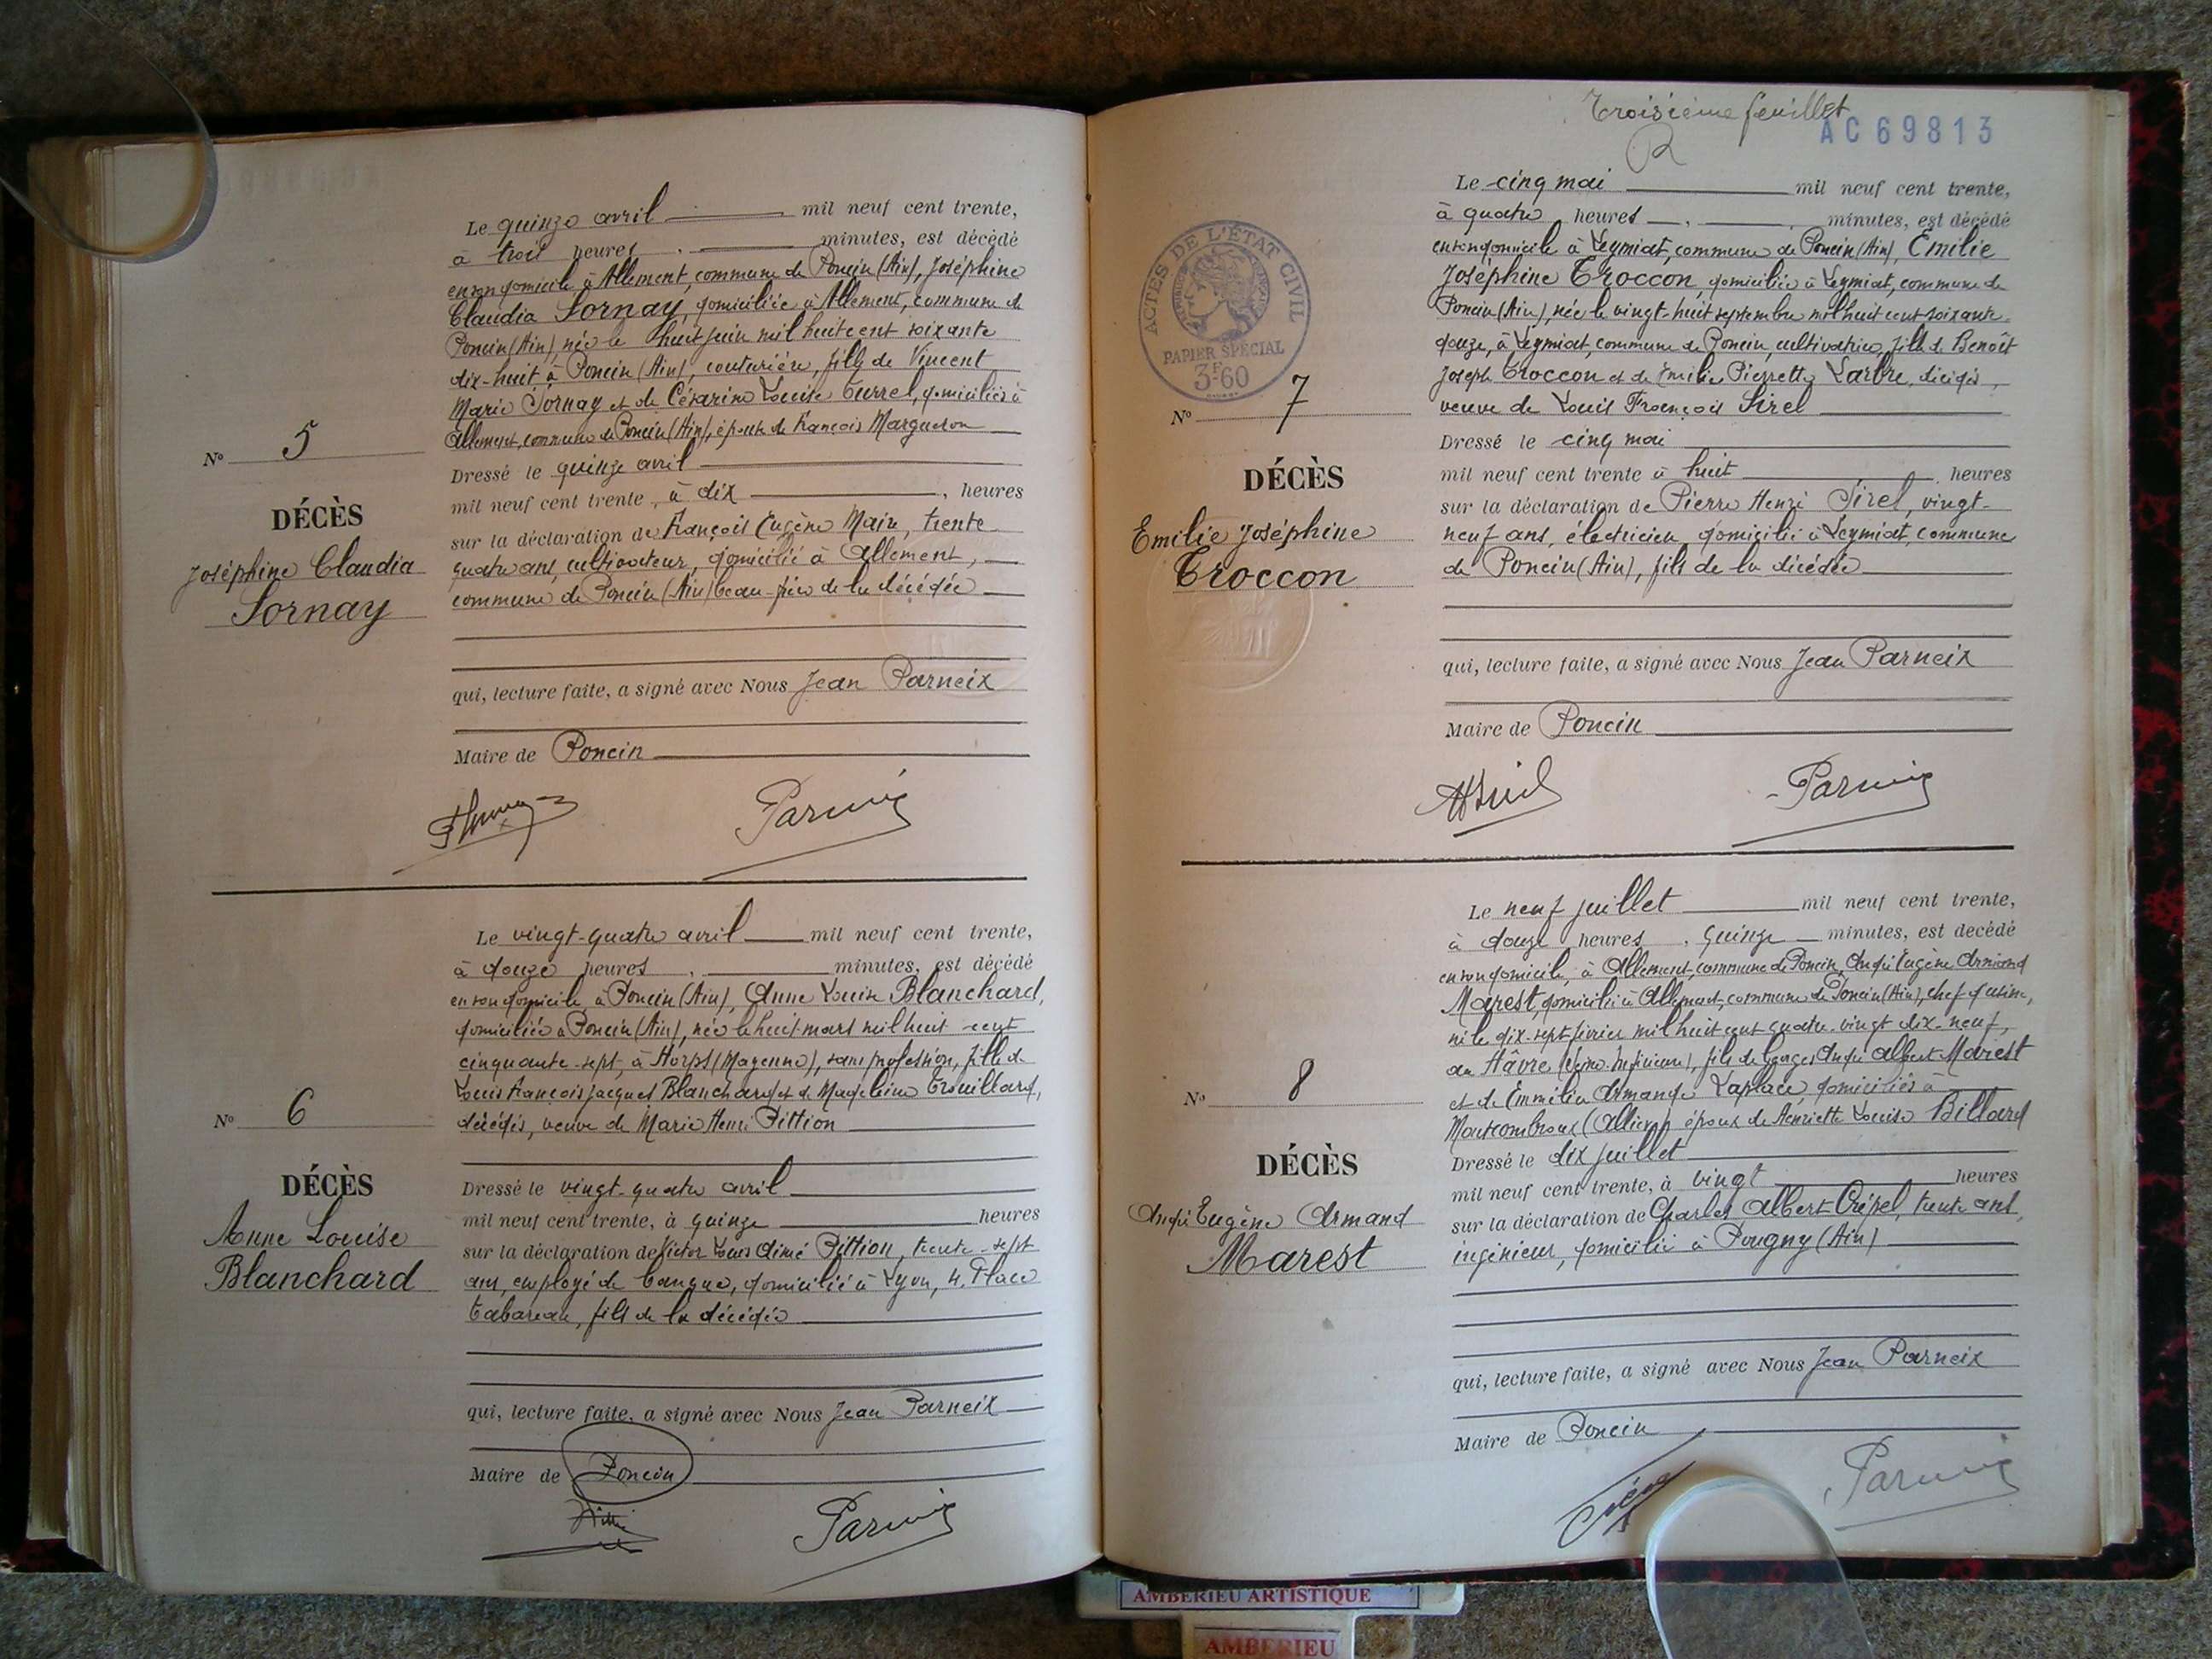 Le quinze avril mil neuf cent trente,
à trois heures minutes, est décédé
en son domicile à Allement, commune de Poncin (Ain), Joséphine
Claudia Sornay, domiciliée à Allement, commune de
Poncin (Ain), née le huit juin mil huit cent soixante
dix-huit à Poncin (Ain), couturière, fille de Vincent
Marie Sornay et de Césarine Louise Turrel, domiciliés à
Allement, commune de Poncin (Ain), épouse de François Margueron
Nº 5
DÉCÈS
Joséphine Claudia
Sornay
Dressé le quinze avril
mil neuf cent trente, à dix heures
sur la déclaration de François Eugène Main, trente
quatre ans, cultivateur, domicilié à Allement,
commune de Poncin (Ain) beau-frère de la décédée
qui, lecture faite, a signé avec Nous Jean Parneix
Maire de Poncin
Parneix
Le vingt-quatre avril mil neuf cent trente,
à douze heures minutes, est décédé
en son domicile à Poncin (Ain), Anne Louise Blanchard,
domiciliée à Poncin (Ain), née le huit mars mil huit cent
cinquante-sept, à Horps (Mayenne), sans profession, fille de
Louis François Jacques Blanchard et de Madeleine Trouillard,
décédés, veuve de Marie Henri Pittion
Nº 6
DÉCÈS
Anne Louise
Blanchard
Dressé le vingt-quatre avril
mil neuf cent trente, à quinze heures
sur la déclaration de Victor Louis Aimé Pittion, trente-sept
ans, employé de banque, domicilié à Lyon, 4, Place
Tabareau, fils de la décédée
qui, lecture faite, a signé avec Nous Jean Parneix
Maire de Poncin
Parneix
Troisième feuillet
AC 69813
R
ACTES DE L'ÉTAT CIVIL
PAPIER SPÉCIAL
3F60
Le cinq mai mil neuf cent trente,
à quatre heures minutes, est décédé
en son domicile à Leymiat, commune de Poncin (Ain), Émilie
Joséphine Troccon, domiciliée à Leymiat, commune de
Poncin (Ain), née le vingt-huit septembre mil huit cent soixante-
douze, à Leymiat, commune de Poncin, cultivatrice, fille de Benoît
Joseph Troccon et de Émilie Pierrette Larbre, décédés,
veuve de Louis François Sirel
Nº 7
DÉCÈS
Emilie Joséphine
Troccon
Dressé le cinq mai
mil neuf cent trente à huit heures
sur la déclaration de Pierre Henri Sirel, vingt-
neuf ans, électricien, domicilié à Leymiat, commune
de Poncin (Ain), fils de la décédée
qui, lecture faite, a signé avec Nous Jean Parneix
Maire de Poncin
Parneix
Le neuf juillet mil neuf cent trente,
à douze heures, quinze minutes, est decédé
en son domicile, à Allement, commune de Poncin, André Eugène Armand
Marest, domicilié à Allement, commune de Poncin (Ain), chef d'usine,
né le dix-sept février mil huit cent quatre-vingt dix-neuf,
au Hâvre (Seine-Inférieure), fils de Georges André Albert Marest
et de Emmilie Armande Laplace, domiciliés à
Montcombroux (Allier), époux de Henriette Louise Billard
Nº 8
DÉCÈS
André Eugène Armand
Marest
Dressé le dix juillet
mil neuf cent trente, à vingt heures
sur la déclaration de Charles Albert Crépel, trente ans,
ingénieur, domicilié à Pougny (Ain)
qui, lecture faite, a signé avec Nous Jean Parneix
Maire de Poncin
Parneix
AMBERIEU ARTISTIQUE
AMBERIEU